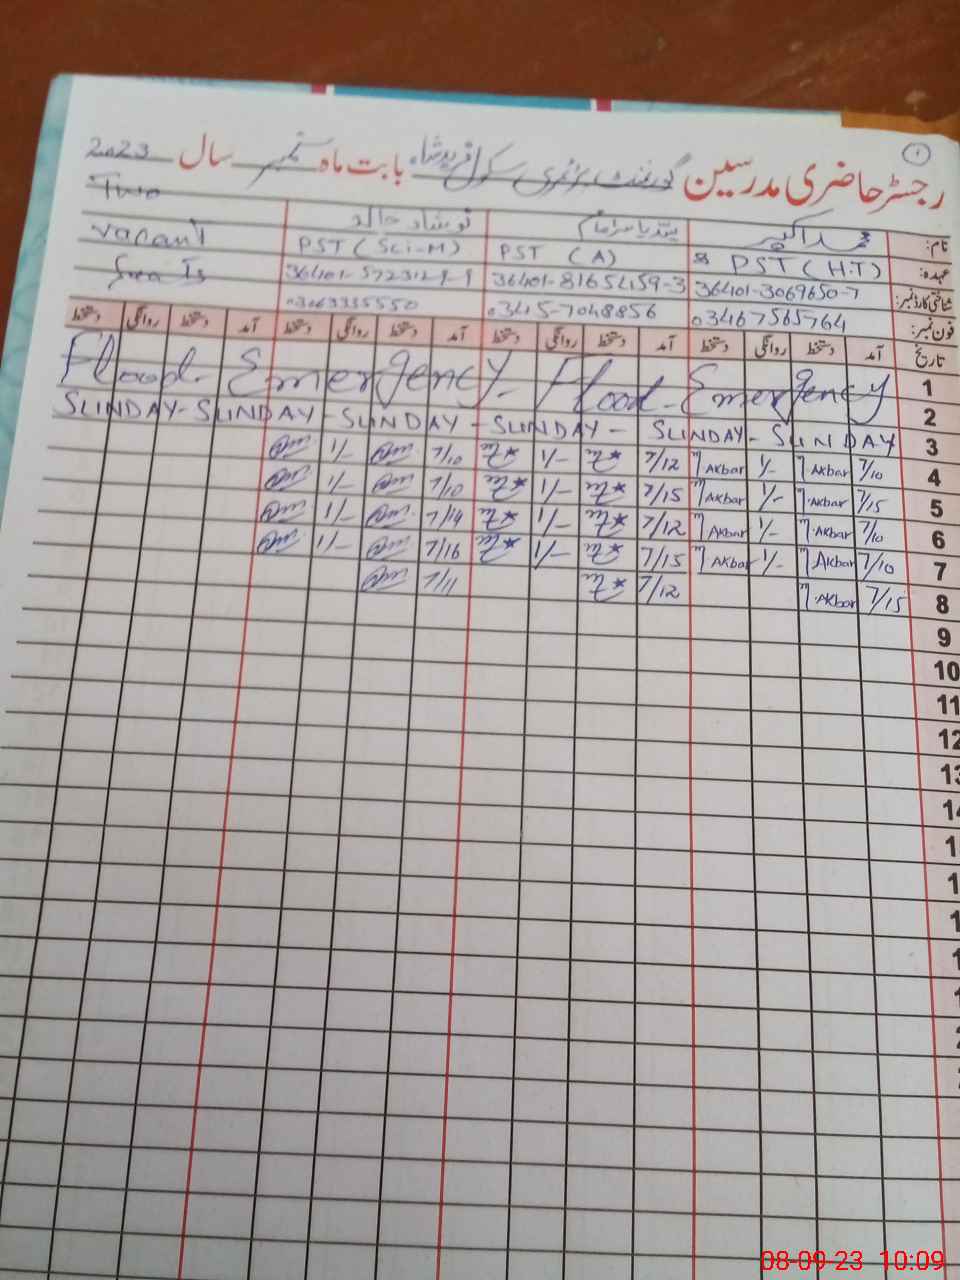 ۱
رجسٹر حاضری مدرسین گورنمنٹ پرائمری سکول فرید شاہ بابت ماہ ستمبر سال 2023
نام: محمد اکبر نوشاد خالد Two
عہدہ: PST (H.T) PST (A) PST (Sci-M) Vacant
شناختی کارڈ نمبر: 36401-3069650-7 36401-8165459-3 36401-5723129-9
فون نمبر: 03467565764 0345-7048856 03063335550
تاریخ آمد دستخط روانگی دستخط آمد دستخط روانگی دستخط آمد دستخط روانگی دستخط آمد دستخط روانگی دستخط
1 Flood Emergency Flood Emergency
2
3 SUNDAY - SUNDAY - SUNDAY - SUNDAY - SUNDAY - SUNDAY
4 7/10 M Akbar 1/- M Akbar 7/12 1/- 7/10 1/-
5 7/15 M. Akbar 1/- M Akbar 7/15 1/- 7/10 1/-
6 7/10 M. Akbar 1/- M Akbar 7/12 1/- 7/14 1/-
7 7/10 M Akbar 1/- M Akbar 7/15 1/- 7/16 1/-
8 7/15 M. Akbar 7/12 7/11
9
10
11
12
13
08-09-23 10:09